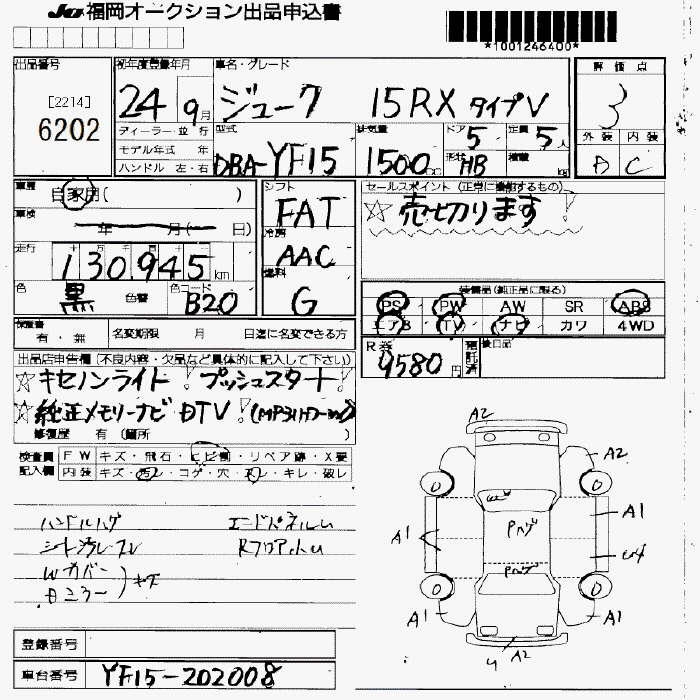 JU 福岡オークション出品申込書
*1001246400*
出品番号
[2214]
6202
初年度登録年月
24年 9月
車名・グレード
ジューク 15RX タイプV
ディーラー・並行
モデル年式 年
ハンドル 左・右
型式
DBA-YF15
排気量
1500cc
ドア
5
形状
HB
定員
5人
積載
kg
評価点
3
外装 内装
D C
車歴
自家用( )
車検
年 月( 日)
走行
130,945 km
色
黒
色替
色コード
B20
シフト
FAT
冷房
AAC
燃料
G
セールスポイント (正常に機能するもの)
☆売切ります!
装備品(純正品に限る)
PS PW AW SR ABS
エアB TV ナビ カワ 4WD
保証書
有・無
名変期限 月 日迄に名変できる方
R券
9580円
預託済
後日品
出品店申告欄(不良内容・欠品など具体的に記入して下さい)
☆キセノンライト! プッシュスタート!
☆純正メモリーナビ DTV!
修復歴 有(箇所 )
検査員記入欄
FW キズ・飛石・ヒビ割・リペア跡・X要
内装 キズ・汚レ・コゲ・穴・スレ・キレ・破レ
ハンドルハゲ
エンドパネルU
シート汚レスレ
RフロアハU
Wカバー
Dミラー
キズ
A2
A2
A1
A1
A1
A1
A2
登録番号
車台番号
YF15-202008